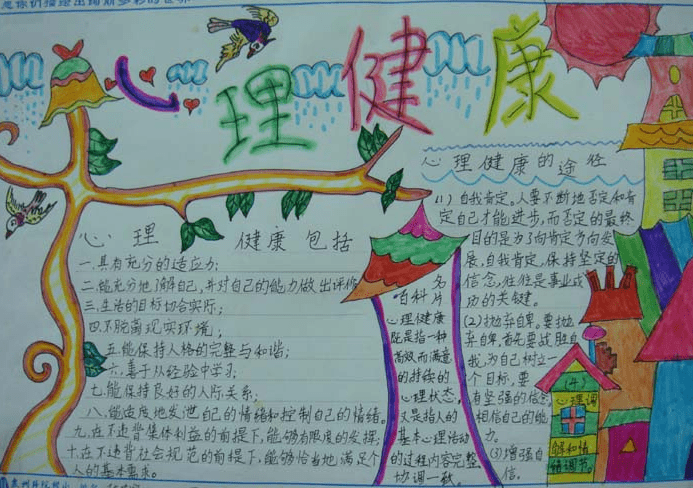 心理健康
心理 健康包括
一.具有充分的适应力;
二.能充分地了解自己,并对自己的能力做出评价
三.生活的目标切合实际;
四.不脱离现实环境;
五.能保持人格的完整与和谐;
六.善于从经验中学习;
七.能保持良好的人际关系;
八.能适度地发泄自己的情绪和控制自己的情绪。
九.在不违背集体利益的前提下,能够有限度的发挥;
十.在不违背社会规范的前提下,能够恰当地满足个
人的基本要求。
百科名片
心理健康
既是指一种
高效而满意
的持续的
心理状态。
又是指人的
基本心理活动
的过程内容完整
协调一致。
心理健康的途径
(1)自我肯定。人要不断地否定和肯
定自己才能进步,而否定的最终
目的是为了向肯定方向发
展,自我肯定,保持坚定的
信念,往往是事业成
功的关键。
(2)抛弃自卑。要抛
弃自卑,首先要战胜自
我,为自己树立一
个目标,要
有坚强的信念
相信自己的能
力。
(3)增强自
信。
(4)
心理调
解和情
绪调节。